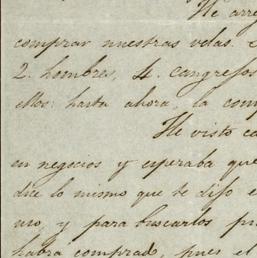 He arre
comprar nuestras velas. E
2. hombres, 4. cangrejos
ellos: hasta ahora, la com
He visto ca
en negocios y esperaba que
dice lo mismo que te dijo e
uno, y para buscarlos pr
habra comprado, pues el